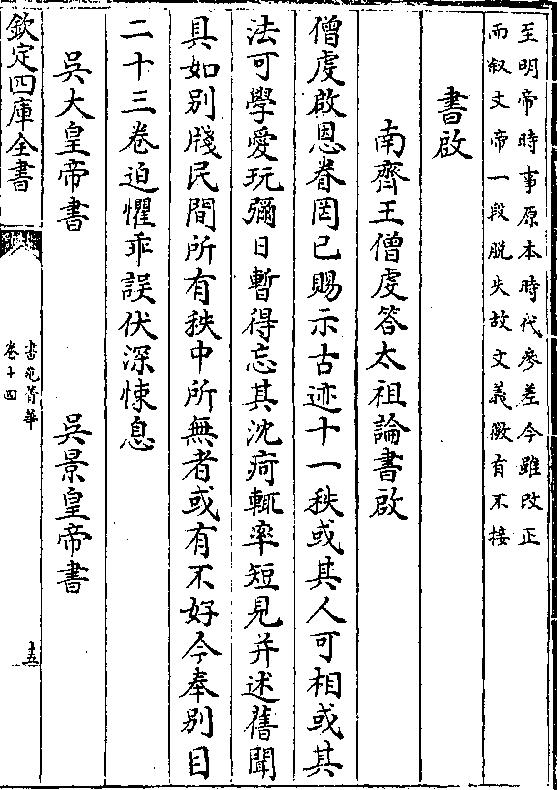 至明帝時事原本時代參差今雖改正
而叙文帝一段脱失故文義微有不接
書啟
南齊王僧虔答太祖論書啟
僧虔啟恩眷罔已賜示古迹十一秩或其人可相或其
法可學愛玩彌日暫得忘其沈疴輒率短見并述舊聞
具如别牋民間所有秩中所無者或有不好今奉别目
二十三卷迫懼乖誤伏深悚息
吳大皇帝書　吳景皇帝書
欽定四庫全書
書苑菁華
卷十四
十五